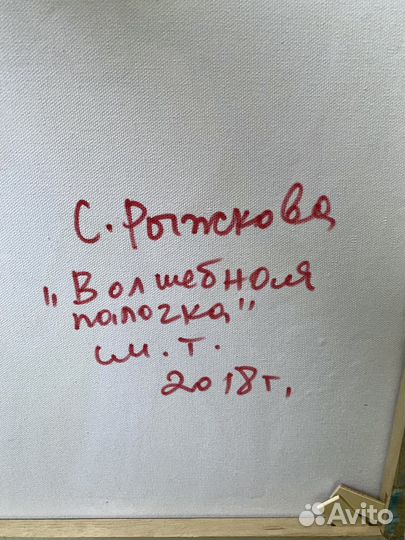 С. Рыжкова
"Волшебная
палочка"
см. т.
2018 г.
Avito